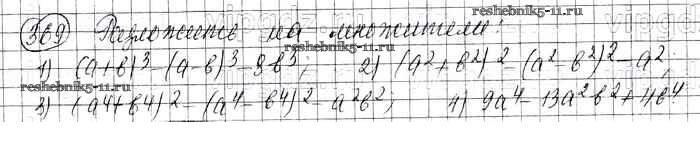 369 Разложить на множители:
1) (a+b)³-(a-b)³-8b³; 2) (a²+b²)²-(a²-b²)²-a²;
3) (a⁴+b⁴)²-(a⁴-b⁴)²-a²b²; 4) 9a⁴-13a²b²+4b⁴
reshebnik5-11.ru
reshebnik5-11.ru
reshebnik5-11.ru
reshebnik5-11.ru